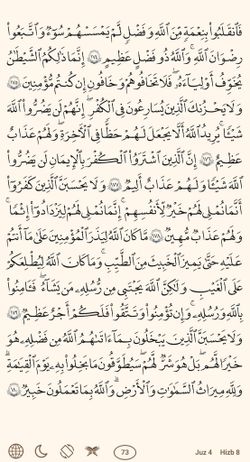 فَٱنقَلَبُوا۟ بِنِعْمَةٍ مِّنَ ٱللَّهِ وَفَضْلٍ لَّمْ يَمْسَسْهُمْ سُوٓءٌ وَٱتَّبَعُوا۟
رِضْوَٰنَ ٱللَّهِ ۗ وَٱللَّهُ ذُو فَضْلٍ عَظِيمٍ ١٧٤ إِنَّمَا ذَٰلِكُمُ ٱلشَّيْطَٰنُ
يُخَوِّفُ أَوْلِيَآءَهُۥ فَلَا تَخَافُوهُمْ وَخَافُونِ إِن كُنتُم مُّؤْمِنِينَ ١٧٥
وَلَا يَحْزُنكَ ٱلَّذِينَ يُسَٰرِعُونَ فِى ٱلْكُفْرِ ۚ إِنَّهُمْ لَن يَضُرُّوا۟ ٱللَّهَ
شَيْـًٔا ۗ يُرِيدُ ٱللَّهُ أَلَّا يَجْعَلَ لَهُمْ حَظًّا فِى ٱلْـَٔاخِرَةِ ۖ وَلَهُمْ عَذَابٌ
عَظِيمٌ ١٧٦ إِنَّ ٱلَّذِينَ ٱشْتَرَوُا۟ ٱلْكُفْرَ بِٱلْإِيمَٰنِ لَن يَضُرُّوا۟
ٱللَّهَ شَيْـًٔا وَلَهُمْ عَذَابٌ أَلِيمٌ ١٧٧ وَلَا يَحْسَبَنَّ ٱلَّذِينَ كَفَرُوٓا۟
أَنَّمَا نُمْلِى لَهُمْ خَيْرٌ لِّأَنفُسِهِمْ ۚ إِنَّمَا نُمْلِى لَهُمْ لِيَزْدَادُوٓا۟ إِثْمًا ۚ
وَلَهُمْ عَذَابٌ مُّهِينٌ ١٧٨ مَّا كَانَ ٱللَّهُ لِيَذَرَ ٱلْمُؤْمِنِينَ عَلَىٰ مَآ أَنتُمْ
عَلَيْهِ حَتَّىٰ يَمِيزَ ٱلْخَبِيثَ مِنَ ٱلطَّيِّبِ ۗ وَمَا كَانَ ٱللَّهُ لِيُطْلِعَكُمْ
عَلَى ٱلْغَيْبِ وَلَٰكِنَّ ٱللَّهَ يَجْتَبِى مِن رُّسُلِهِۦ مَن يَشَآءُ ۖ فَـَٔامِنُوا۟
بِٱللَّهِ وَرُسُلِهِۦ ۚ وَإِن تُؤْمِنُوا۟ وَتَتَّقُوا۟ فَلَكُمْ أَجْرٌ عَظِيمٌ ١٧٩
وَلَا يَحْسَبَنَّ ٱلَّذِينَ يَبْخَلُونَ بِمَآ ءَاتَىٰهُمُ ٱللَّهُ مِن فَضْلِهِۦ هُوَ
خَيْرًا لَّهُم ۖ بَلْ هُوَ شَرٌّ لَّهُمْ ۖ سَيُطَوَّقُونَ مَا بَخِلُوا۟ بِهِۦ يَوْمَ ٱلْقِيَٰمَةِ ۗ
وَلِلَّهِ مِيرَٰثُ ٱلسَّمَٰوَٰتِ وَٱلْأَرْضِ ۗ وَٱللَّهُ بِمَا تَعْمَلُونَ خَبِيرٌ ١٨٠
73 Juz 4 Hizb 8